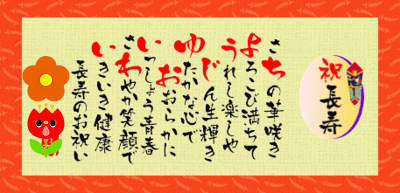 祝
長寿
さちの華咲き
よろこび満ちて
うれし楽しや
じん生輝き
ゆたかな心で
おおらかに
いっしょう青春
さわやか笑顔で
いきいき健康
長寿のお祝い